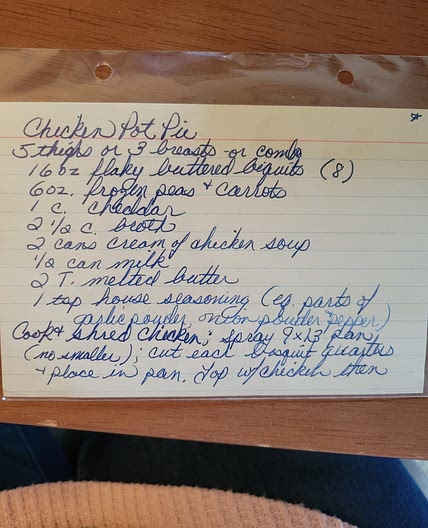 *
Chicken Pot Pie
5 thighs or 3 breasts or combo
16 oz flaky buttered biquits (8)
6 oz. frozen peas + carrots
1 c. cheddar
2 1/2 c. broth
2 cans cream of chicken soup
1/2 can milk
2 T. melted butter
1 tsp house seasoning (eq. parts of
garlic powder onion powder pepper)
Cook + shred chicken; spray 9x13 pan;
(no smaller); cut each bisquit quarters
+ place in pan. Top w/chicken then